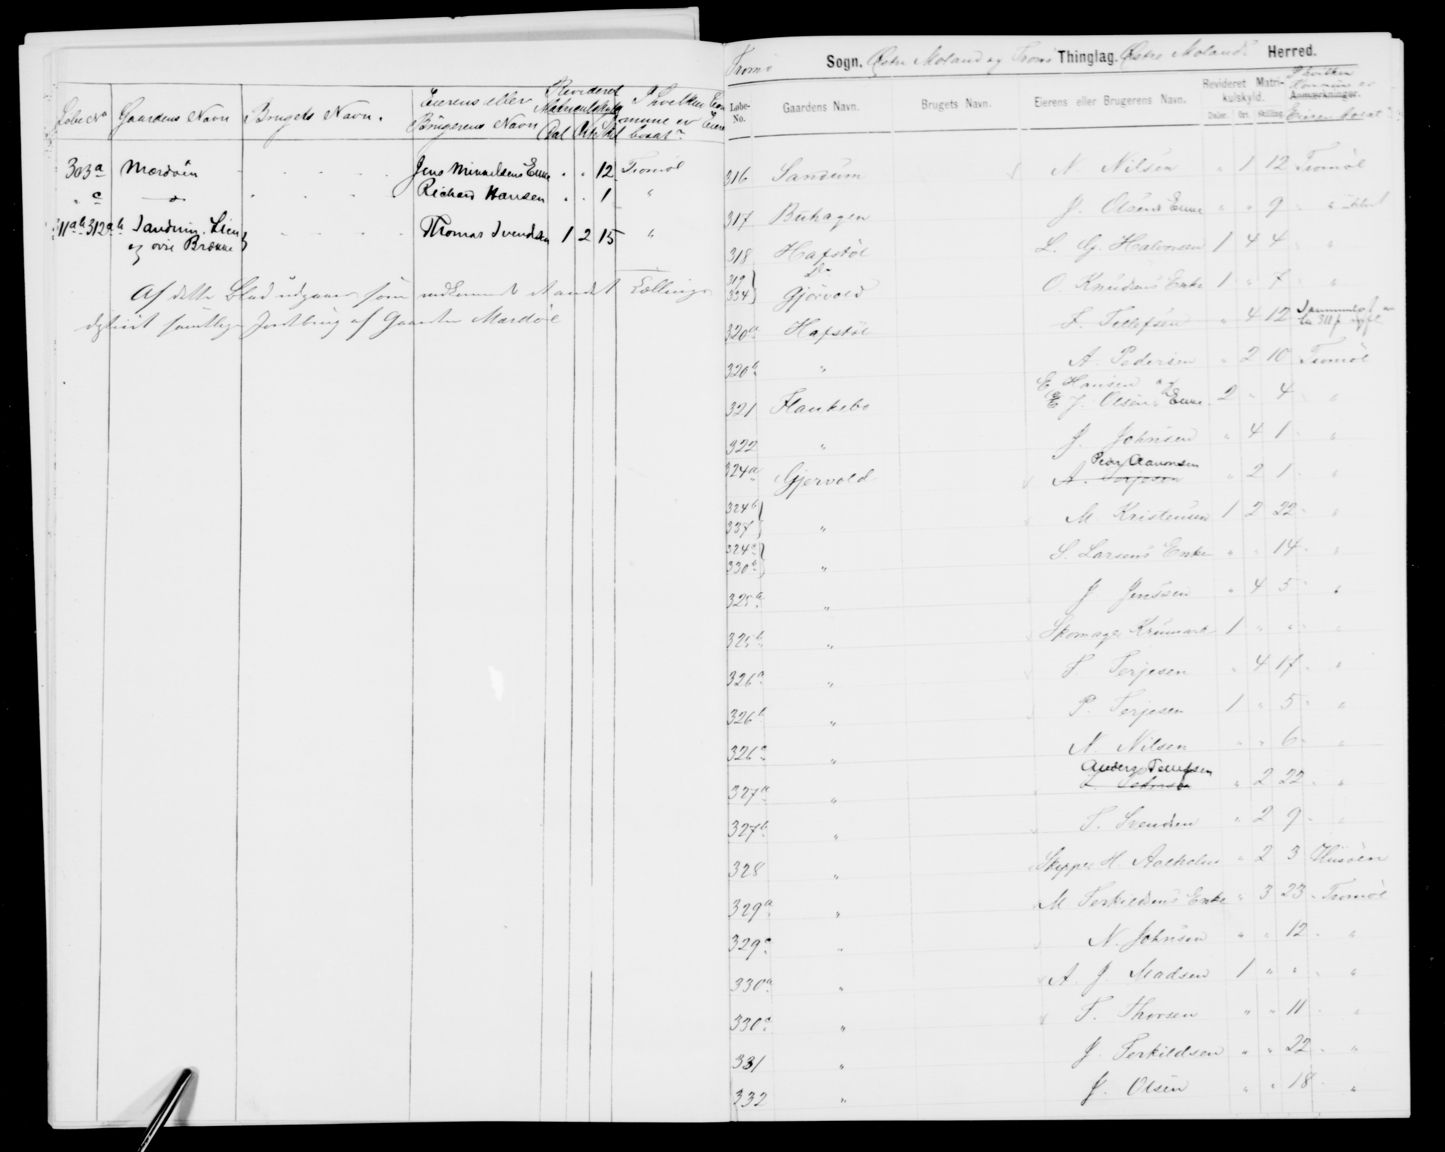 Løbe No Gaardens Navn Brugets Navn. Eierens eller Brugerens Navn Revideret Matrikulskyld Dal Ort Sk I hvilken Kommune er Eieren bosat
303 a Mærdøen Jens Mikkelsens Enke " " 12 Tromöl
" c do Richard Hansen " " 1 "
311 a b 312 a b Sandum, Lien Thomas Svendsen 1 2 15 "
og øvre Brække
Af dette Blad udgaar som indkommet et andet Tællings
distrikt samtlige Jordbrug af Gaarden Mærdöe
Tromö Sogn. Østre Moland og Tromö Thinglag. Østre Molands Herred.
Løbe-No. Gaardens Navn. Brugets Navn. Eierens eller Brugerens Navn. Revideret Matrikulskyld. Daler. Ort. Skilling. Anmærkninger. I hvilken Kommune er Eieren bosat
316 Sandum N. Nilsen " 1 12 Tromöl
317 Buhagen J. Olsens Enke " " 9 "
318 Hafstöl L. G. Halvorsen 1 4 4 "
319 Do
334 Gjervold O. Knudsens Enke 1 " 7 "
320 a Hafstöl F. Tellefsen " 4 12
320 b " A. Pedersen " 2 10 Tromöl
321 Flankebo E Hansen og
E J. Olsens Enke 2 " 4 "
322 " J. Johnsen " 4 1 "
324 a Gjervold Peder Aanonsen
A. Terjesen " 2 1 "
324 b
337 " M. Kristensen 1 2 22 "
324 c
330 b " S. Larsens Enke " " 14 "
325 a " J Jenssen " 4 5 "
325 b " Skomager Krumark 1 " " "
326 a " S. Terjesen " 4 17 "
326 b " P. Terjesen 1 " 5 "
326 c " N. Nilsen " " 6 "
327 a " Anders Tellefsen " 2 22 "
327 b " S. Svendsen " 2 9 "
328 " Skipper H Aalholm " 2 3 Hisöen
329 a " M Terkildsens Enke " 3 23 Tromöl
329 c " N. Johnsen " " 12 "
330 a " A. J. Madsen 1 " " "
330 c " T. Thorsen " " 11 "
331 " J. Terkildsen " " 22 "
332 " J. Olsen " " 18 "